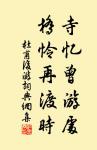 寺忆曾游处
桥怜再渡时
杜甫后游词典网集